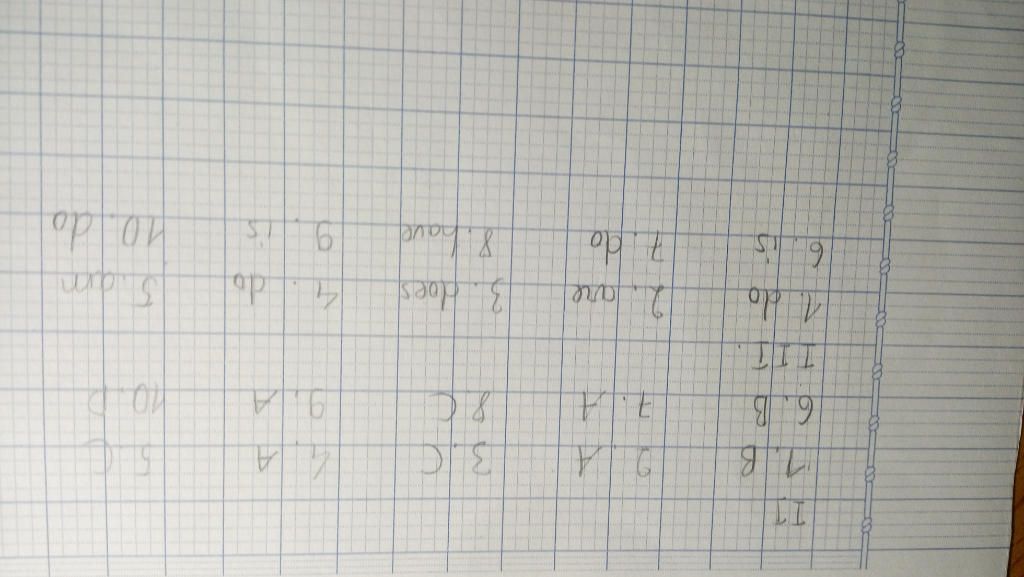 II
1. B 2. A 3. C 4. A 5. C
6. B 7. A 8. C 9. A 10. D
III.
1. do 2. are 3. does 4. do 5. am
6. is 7. do 8. have 9. is 10. do